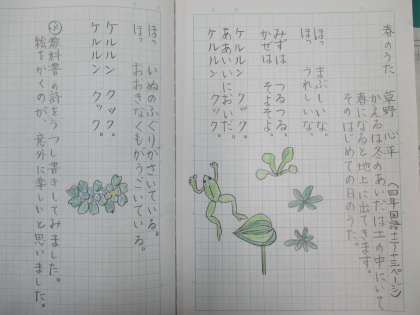 春のうた 草野 心平
(四年国語上十二～十三ページ)
かえるは冬のあいだは土の中にいて
春になると地上に出てきます。
そのはじめての日のうた。
ほっ まぶしいな。
ほっ うれしいな。
みずは つるつる。
かぜは そよそよ。
ケルルン クック。
ああいいにおいだ。
ケルルン クック。
ほっ いぬのふぐりがさいている。
ほっ おおきなくもがうごいている。
ケルルン クック。
ケルルン クック。
教科書の詩をうつし書きしてみました。
絵をかくのが、意外に楽しいと思いました。